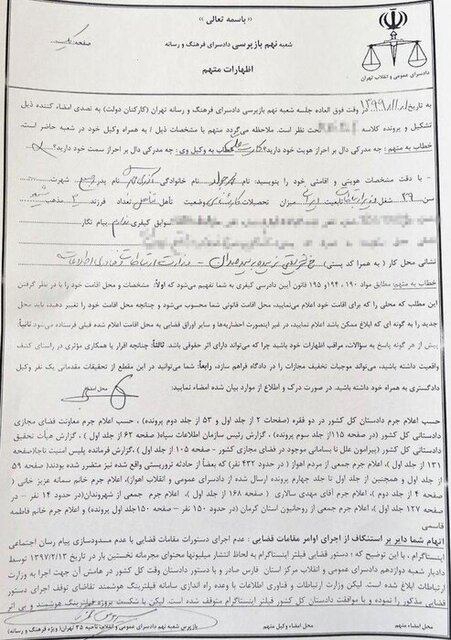 « باسمه تعالی »
شعبه نهم بازپرسی دادسرای فرهنگ و رسانه
صفحه
اظهارات متهم
دادسرای عمومی و انقلاب تهران
به تاریخ ۱۳۹۹ وقت فوق العاده جلسه شعبه نهم بازپرسی دادسرای فرهنگ و رسانه تهران (کارکنان دولت) به تصدی امضاء کننده ذیل
تشکیل و پرونده کلاسه تحت نظر است. ملاحظه می‌گردد متهم با مشخصات ذیل / به همراه وکیل خود در شعبه حاضر است.
خطاب به متهم: چه مدرکی دال بر احراز هویت خود دارید؟ خطاب به وکیل وی: چه مدرکی دال بر احراز سمت خود دارید؟
- با دقت مشخصات هویتی و اقامتی خود را بنویسید: نام نام خانوادگی نام پدر شهرت
سن ۳۹ شغل وزیر ارتباطات تابعیت میزان تحصیلات وضعیت تأهل تعداد فرزند ۲ مذهب
پیشینه کیفری پیام نگار
نشانی محل کار (به همراه کد پستی) خ شریعتی نرسیده به پل سیدخندان – وزارت ارتباطات و فناوری اطلاعات
خطاب به متهم: مطابق مواد ۱۹۰، ۱۹۴ و ۱۹۵ قانون آیین دادرسی کیفری به شما تفهیم می‌شود که اولاً: مشخصات و محل اقامت خود را با در نظر گرفتن
این مطلب که محلی را که برای اقامت خود اعلام می‌نمایید، محل اقامت قانونی شما محسوب می‌شود و چنانچه محل اقامت خود را تغییر دهید باید محل
جدید را به گونه ای که ابلاغ ممکن باشد اعلام نمایید، در غیر اینصورت احضاریه‌ها و سایر اوراق قضایی به محل اقامت اعلام شده قبلی فرستاده می‌شود ثانیاً:
پیش از هر گونه پاسخ به سؤالات، مراقب اظهارات خود باشید چرا که می‌تواند دارای اثر حقوقی باشد. ثالثاً: چنانچه اقرار یا همکاری مؤثری در راستای کشف
واقعیت داشته باشید، می‌تواند موجبات تخفیف مجازات را در دادگاه فراهم سازد، رابعاً: شما می‌توانید در این مقطع از تحقیقات مقدماتی یک نفر وکیل
دادگستری به همراه خود داشته باشید. در صورت درک و اطلاع از موارد بیان شده امضاء نمایید:
محل امضاء
حسب اعلام جرم دادستان کل کشور در دو فقره (صفحات ۲ از جلد اول و ۵۳ از جلد دوم پرونده) ، حسب اعلام جرم معاونت فضای مجازی
دادستانی کل کشور (در صفحه ۱۱۵ از جلد سوم پرونده) ، گزارش رئیس سازمان اطلاعات سپاه( صفحه ۶۲ از جلد اول )، گزارش هیأت تحقیق
دادستانی کل کشور (پیرامون علل نا بسامانی موجود در فضای مجازی کشور - صفحه ۱۰۵ از جلد اول )، گزارش فرمانده پلیس امنیت ناجا(صفحه
۱۳۱ از جلد اول)، اعلام جرم جمعی از مردم اهواز ( در حدود ۴۳۲ نفر) که بعضاً از حادثه تروریستی واقع شده نیز متضرر شده بودند( صفحه ۵۹
از جلد اول و همچنین از جلد اول تا جلد چهارم پرونده ارسال شده از دادسرای عمومی و انقلاب اهواز)، اعلام جرم خانم سمانه عزیز خانی (
صفحه ۴ از جلد دوم )، اعلام جرم آقای مهدی سالاری ( صفحه ۱۶۸ از جلد اول )، اعلام جرم جمعی از شهروندان(در حدود ۱۴ نفر – در
صفحه ۱۲۷ از جلد اول )، اعلام جرم جمعی از روحانیون استان کرمان (در حدود ۱۵۰ نفر – صفحه ۱۵۰جلد اول پرونده) و اعلام جرم خانم فاطمه
قاسمی
اتهام شما دایر بر استنکاف از اجرای اوامر مقامات قضایی : عدم اجرای دستورات مقامات قضایی با عدم مسدودسازی پیام رسان اجتماعی
اینستاگرام ، با این توضیح که : دستور قضایی فیلتر اینستاگرام به لحاظ انتشار میلیونها محتوای مجرمانه نخستین بار در تاریخ ۱۳۹۷/۲/۱۳ توسط
دادیار شعبه دوازدهم دادسرای عمومی و انقلاب مرکز استان فارس صادر و با دستور دادستان وقت کل کشور در هامش آن جهت اجرا به وزارت
ارتباطات ابلاغ شده است. لیکن وزارت ارتباطات و فناوری اطلاعات با وعده راه اندازی سامانه فیلترینگ هوشمند تقاضای توقف اجرای دستور
قضایی مذکور را نموده و با موافقت دادستان کل کشور فیلتر اینستاگرام متوقف شده است. لیکن با شکست پروژه فیلترینگ هوشمند و بی اثر
محل امضاء متهم
محل امضاء وکیل متهم
بازپرس شعبه نهم دادسرای عمومی و انقلاب ناحیه ۳۵ تهران (ویژه فرهنگ و رسانه)